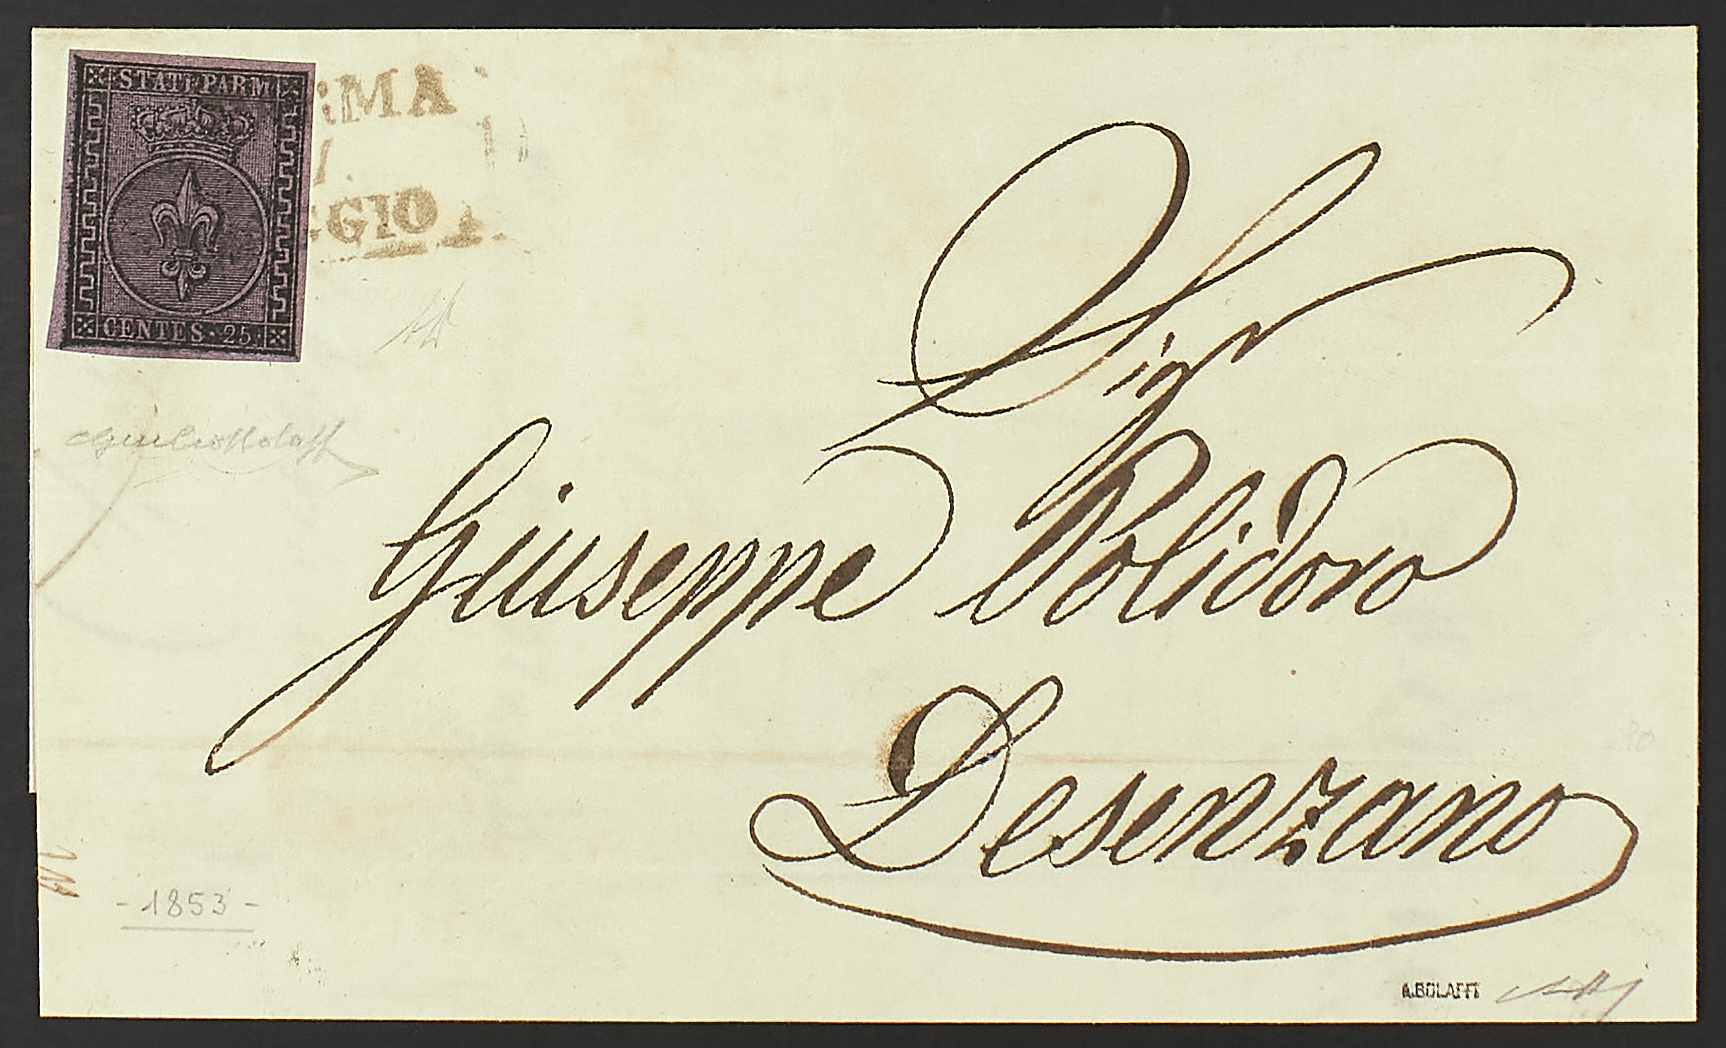 STATI PARM
CENTES. 25
RMA
GGIO
Sigr
Giuseppe Polidoro
Desenzano
- 1853 -
A.BOLAFFI